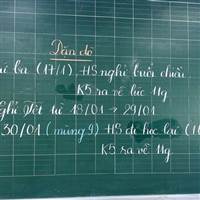 Dặn dò
ứ ba (17/1), HS nghỉ buổi chiều
K5 ra về lúc 11g
ghỉ Tết từ 18/01 → 29/01
30/01 (mùng 9) HS đi học lại (1
K5 ra về 11g